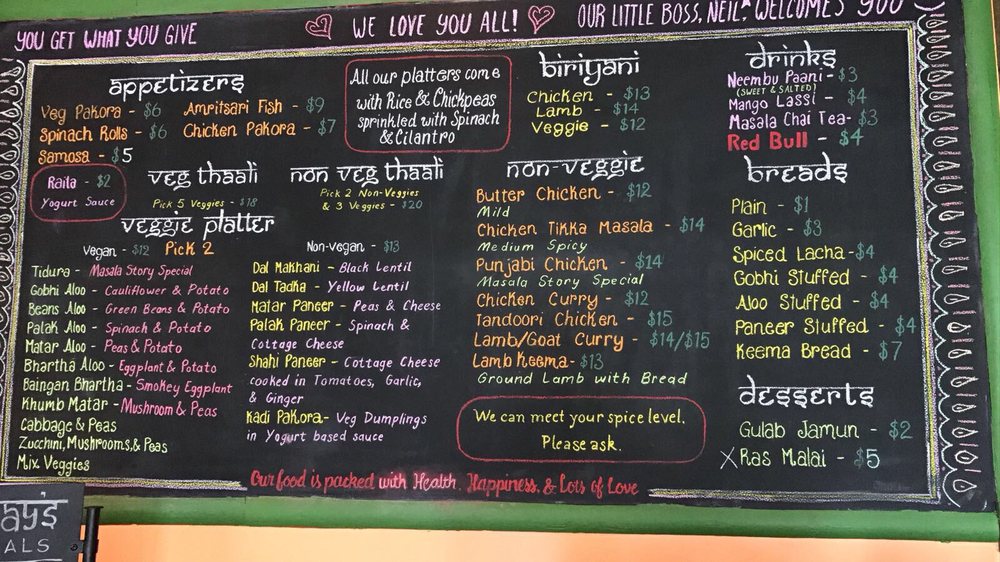 YOU GET WHAT YOU GIVE
WE LOVE YOU ALL!
OUR LITTLE BOSS, NEIL, WELCOMES YOU
appetizers
Veg Pakora - $6
Amritsari Fish - $9
Spinach Rolls - $6
Chicken Pakora - $7
Samosa - $5
All our platters come
with Rice & Chickpeas
sprinkled with Spinach
& Cilantro
Raita - $2
Yogurt Sauce
veg thaali
Pick 5 Veggies - $18
non veg thaali
Pick 2 Non-Veggies
& 3 Veggies - $20
veggie platter
Vegan - $12
Pick 2
Non-vegan - $13
Tidura - Masala Story Special
Gobhi Aloo - Cauliflower & Potato
Beans Aloo - Green Beans & Potato
Palak Aloo - Spinach & Potato
Matar Aloo - Peas & Potato
Bhartha Aloo - Eggplant & Potato
Baingan Bhartha - Smokey Eggplant
Khumb Matar - Mushroom & Peas
Cabbage & Peas
Zucchini, Mushrooms, & Peas
Mix Veggies
Dal Makhani - Black Lentil
Dal Tadka - Yellow Lentil
Matar Paneer - Peas & Cheese
Palak Paneer - Spinach &
Cottage Cheese
Shahi Paneer - Cottage Cheese
cooked in Tomatoes, Garlic,
& Ginger
Kadi Pakora - Veg Dumplings
in Yogurt based sauce
biriyani
Chicken - $13
Lamb - $14
Veggie - $12
non-veggie
Butter Chicken - $12
Mild
Chicken Tikka Masala - $14
Medium Spicy
Punjabi Chicken - $14
Masala Story Special
Chicken Curry - $12
Tandoori Chicken - $15
Lamb/Goat Curry - $14/$15
Lamb Keema - $13
Ground Lamb with Bread
We can meet your spice level.
Please ask.
drinks
Neembu Paani - $3
(SWEET & SALTED)
Mango Lassi - $4
Masala Chai Tea - $3
Red Bull - $4
breads
Plain - $1
Garlic - $3
Spiced Lacha - $4
Gobhi Stuffed - $4
Aloo Stuffed - $4
Paneer Stuffed - $4
Keema Bread - $7
desserts
Gulab Jamun - $2
X Ras Malai - $5
Our food is packed with Health, Happiness, & Lots of Love
ay's
ALS